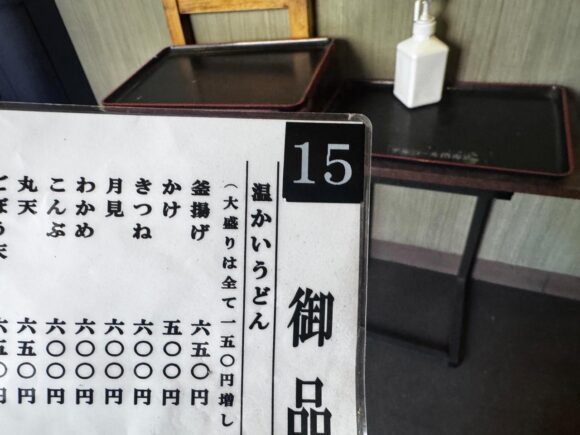 15
御品
温かいうどん
(大盛りは全て一五〇円増し
釜揚げ 六五〇円
かけ 五〇〇円
きつね 六〇〇円
月見 六〇〇円
わかめ 六〇〇円
こんぶ 六〇〇円
丸天 六五〇円
ごぼう天 六五〇円